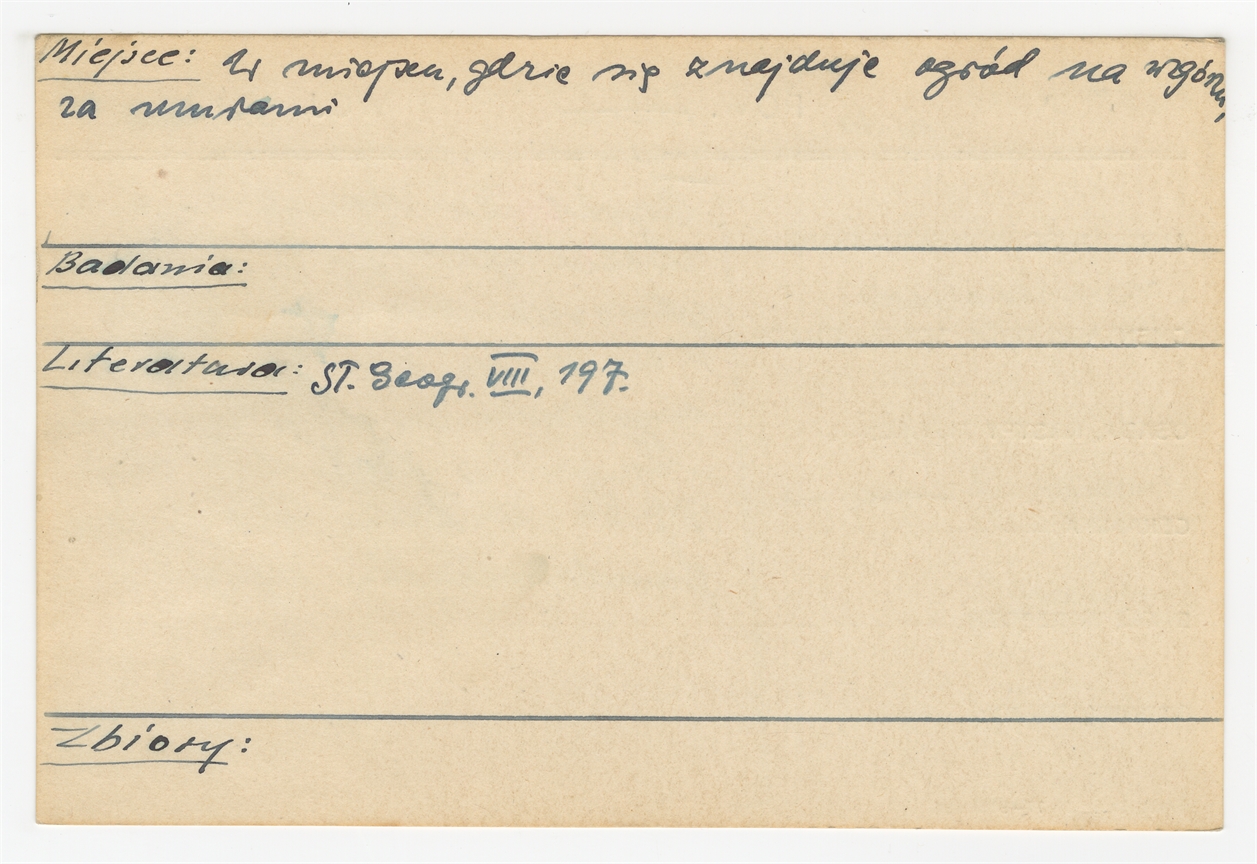 Miejsce: W miejscu, gdzie się znajduje ogród na wzgórzu,
za murami
Badania:
Literatura: Sł. Geogr. VIII, 197.
Zbiory: